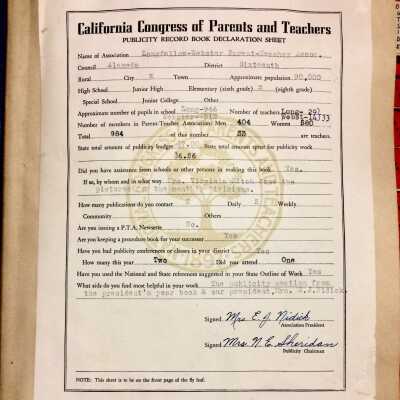 California Congress of Parents and Teachers
PUBLICITY RECORD BOOK DECLARATION SHEET
Name of Association Longfellow-Webster Parent-Teacher Assoc.
Council Alameda District Sixteenth
Rural City X Town Approximate population 90,000
High School Junior High Elementary (sixth grade) X (eighth grade)
Special School Junior College Other
Approximate number of pupils in school Number of teachers
Number of members in Parent-Teacher Association: Men 404 Women 580
Total 984 of this number 33 are teachers.
State total amount of publicity budget State total amount spent for publicity work
36.86
Did you have assistance from schools or other persons in making this book Yes.
If so, by whom and in what way Mrs. Virginia
pictures in the monthly divisions.
How many publications do you contact Daily Weekly
Community Others
Are you issuing a P.T.A. Newsette No.
Are you keeping a procedure book for your successor Yes
Have you had publicity conferences or classes in your district Yes
How many this year Two Did you attend One
Have you used the National and State references suggested in your State Outline of Work Yes
What aids do you find most helpful in your work The publicity section from
the president's year book & our president, Mrs. E.J.Nidick.
Signed Mrs E. J. Nidick
Association President
Signed Mrs. N. E. Sheridan
Publicity Chairman
NOTE: This sheet is to be on the front page of the fly leaf.